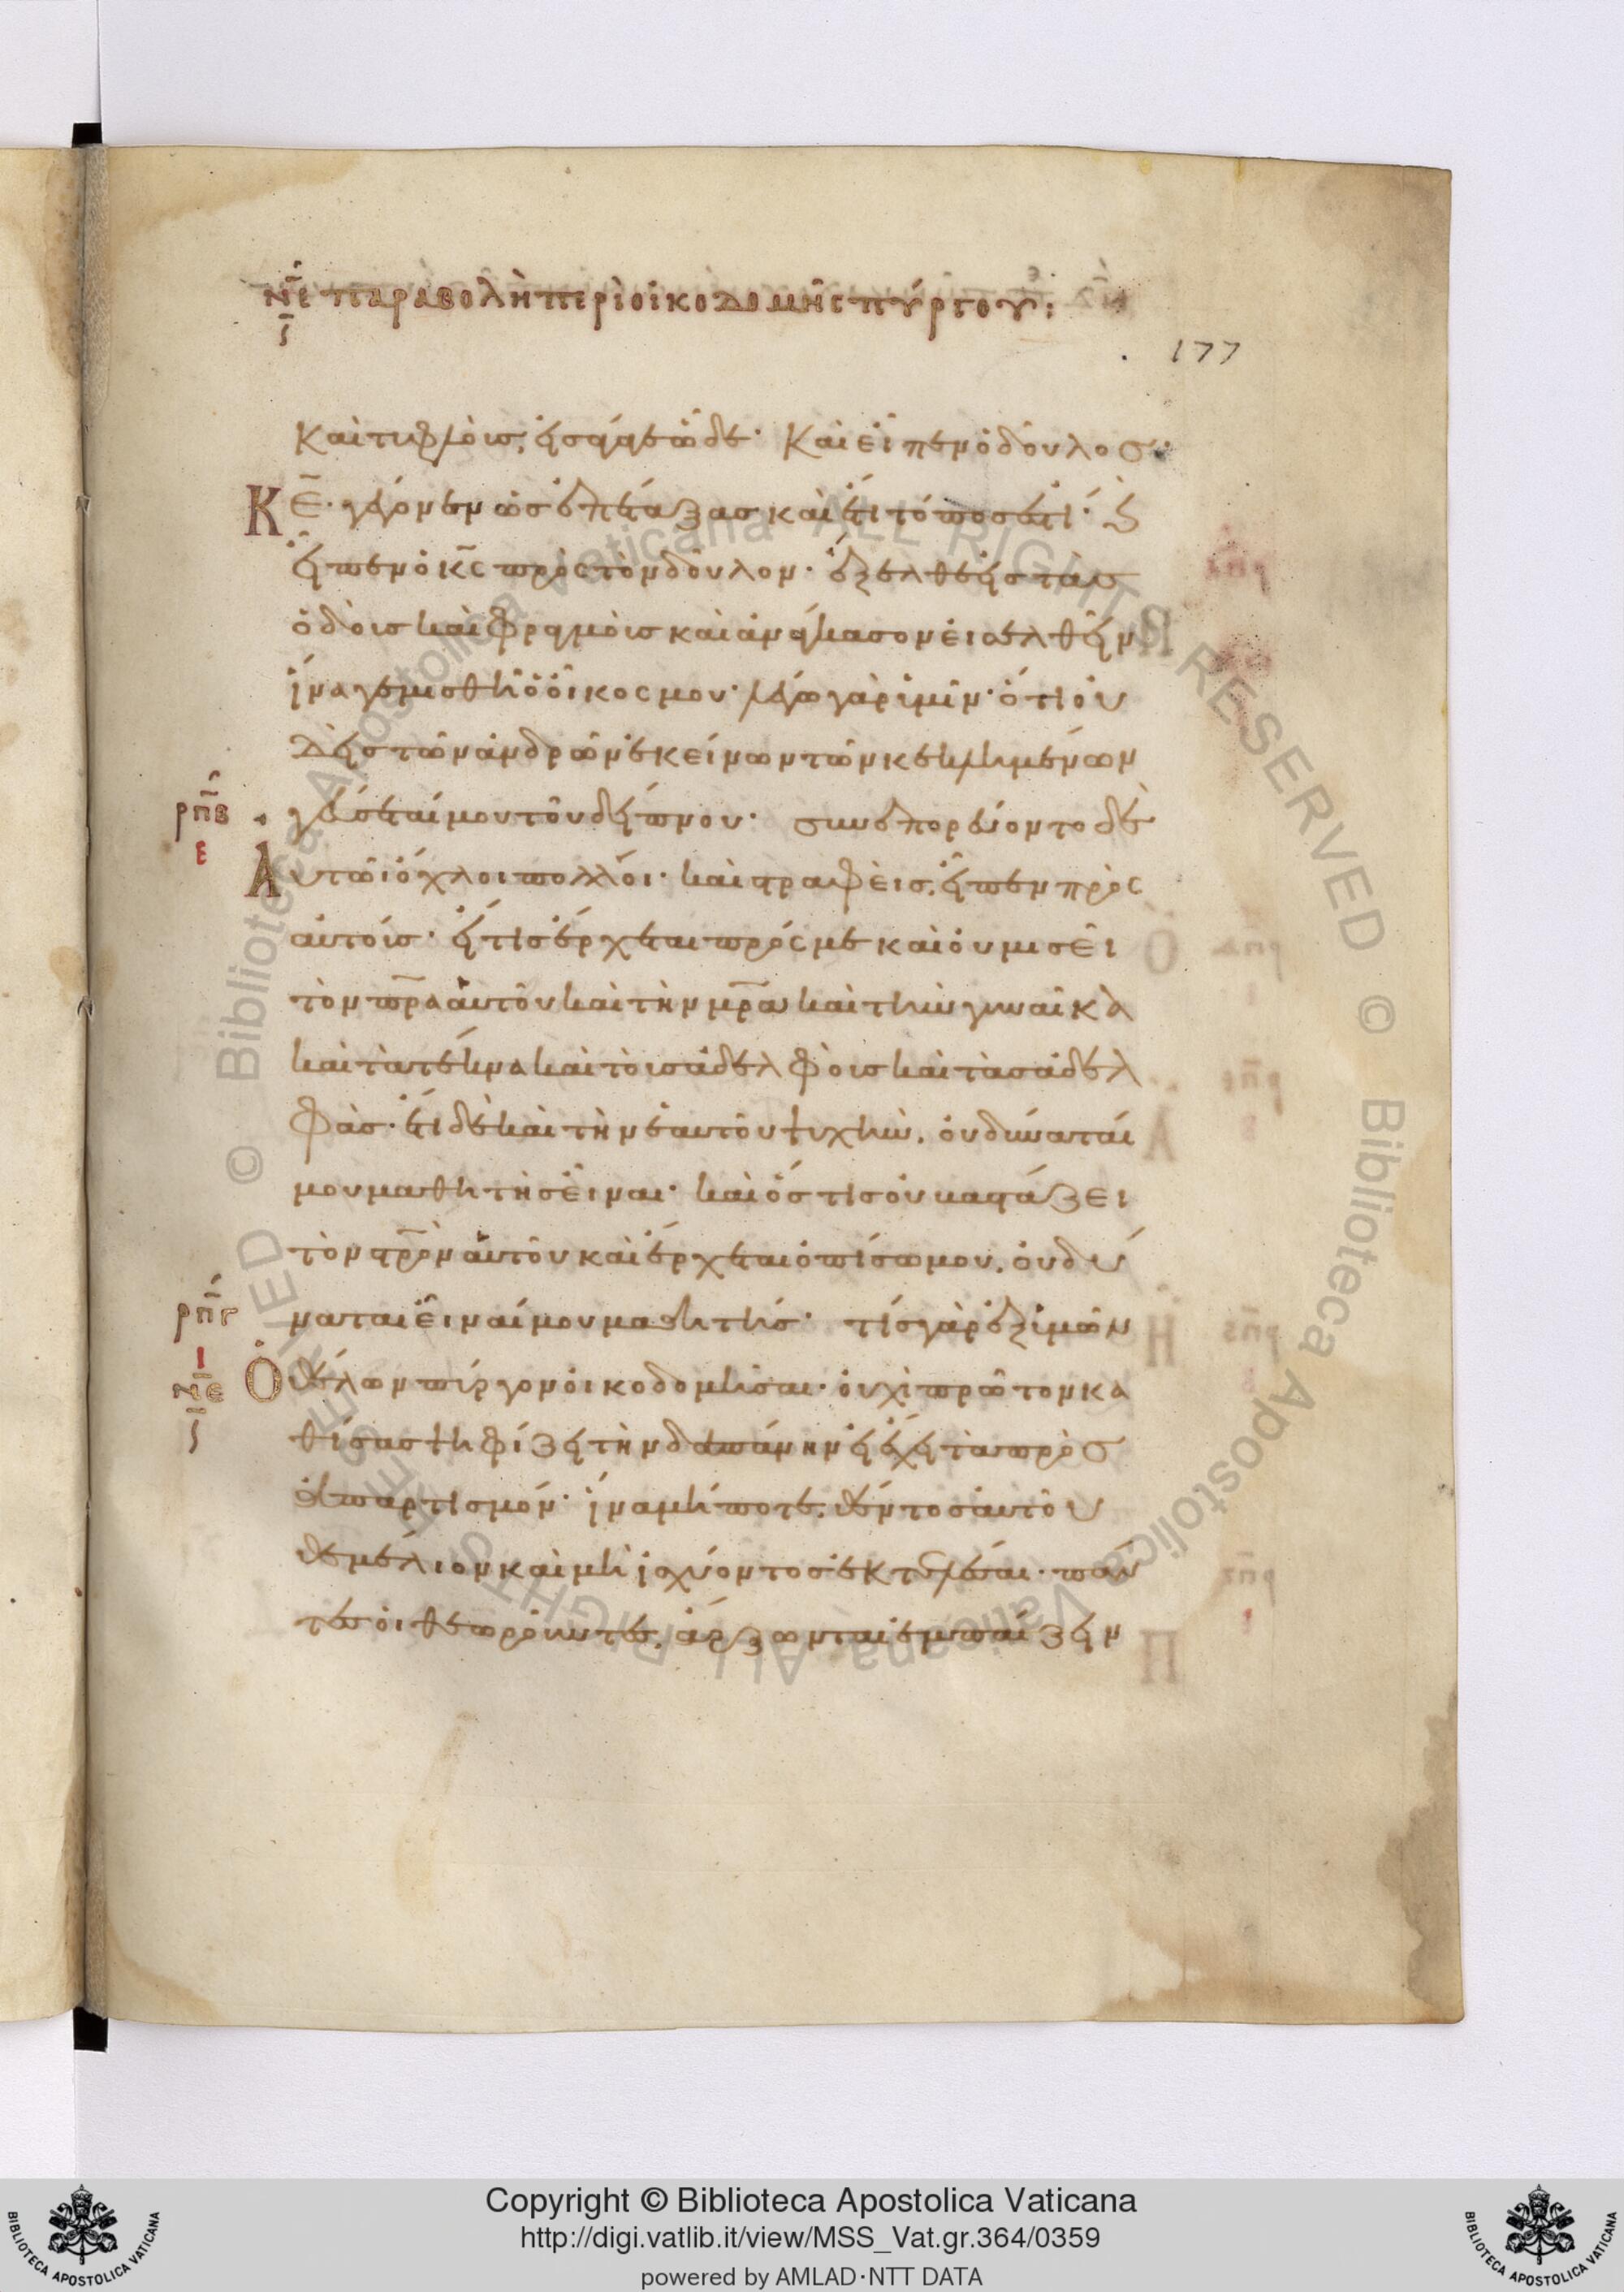 νε παραβολὴ περὶ οἰκοδομῆς πύργου:
ς
177
καὶ τυφλοὺσ, εἰσάγαγε ὧδε· Καὶ εἶπεν ὁ δοῦλοσ·
ΚΕ· γέγονεν ὡσ ἐπέταξασ καὶ ἔτι τόπος ἐστί· Καὶ
εἶπεν ὁ κς πρὸς τὸν δοῦλον· ἔξελθε εἰς τὰσ
ὁδοὺς καὶ φραγμοὺς καὶ ἀνάγκασον εἰσελθεῖν
ἵνα γεμισθῆ ὁ οἶκος μου· λέγω γὰρ ὑμῖν· ὅτι οὐ
δεὶς τῶν ἀνδρῶν ἐκείνων τῶν κεκλημένων
ρπβ
ε
γεύσεταί μου τοῦ δείπνου· συνεπορεύοντο δὲ
Αὐτῶ ὄχλοι πολλοί· καὶ στραφεὶσ, εἶπεν πρὸς
αὐτούσ· εἴ τισ ἔρχεται πρός με καὶ οὐ μισεῖ
τὸν πρα αὐτοῦ καὶ τὴν μρα καὶ τὴν γυναῖκα
καὶ τὰ τέκνα καὶ τοὺσ ἀδελφοὺσ καὶ τὰσ ἀδελ
φάσ· ἔτι δὲ καὶ τὴν ἑαυτοῦ ψυχὴν, οὐ δύναταί
μου μαθητὴσ εἶναι· καὶ ὅστισ οὐ βαστάζει
τὸν στρον αὐτοῦ καὶ ἔρχεται ὀπίσω μου, οὐ δύ
ρπγ
ι
ναται εἶναί μου μαθητήσ· τίσ γὰρ ἐξ ὑμῶν
νε
ς
Ὁ θέλων πύργον οἰκοδομῆσαι· οὐχὶ πρῶτον κα
θίσας ψηφίζει τὴν δαπάνην εἰ ἔχει τὰ πρὸσ
ἀπαρτισμόν· ἵνα μήποτε, θέντοσ αὐτοῦ
θεμέλιον καὶ μὴ ἰσχύοντοσ ἐκτελέσαι· πάν
τεσ οἱ θεωροῦντεσ, ἄρξωνται ἐμπαίζειν
Copyright © Biblioteca Apostolica Vaticana
http://digi.vatlib.it/view/MSS_Vat.gr.364/0359
powered by AMLAD·NTT DATA
BIBLIOTECA APOSTOLICA VATICANA
BIBLIOTECA APOSTOLICA VATICANA